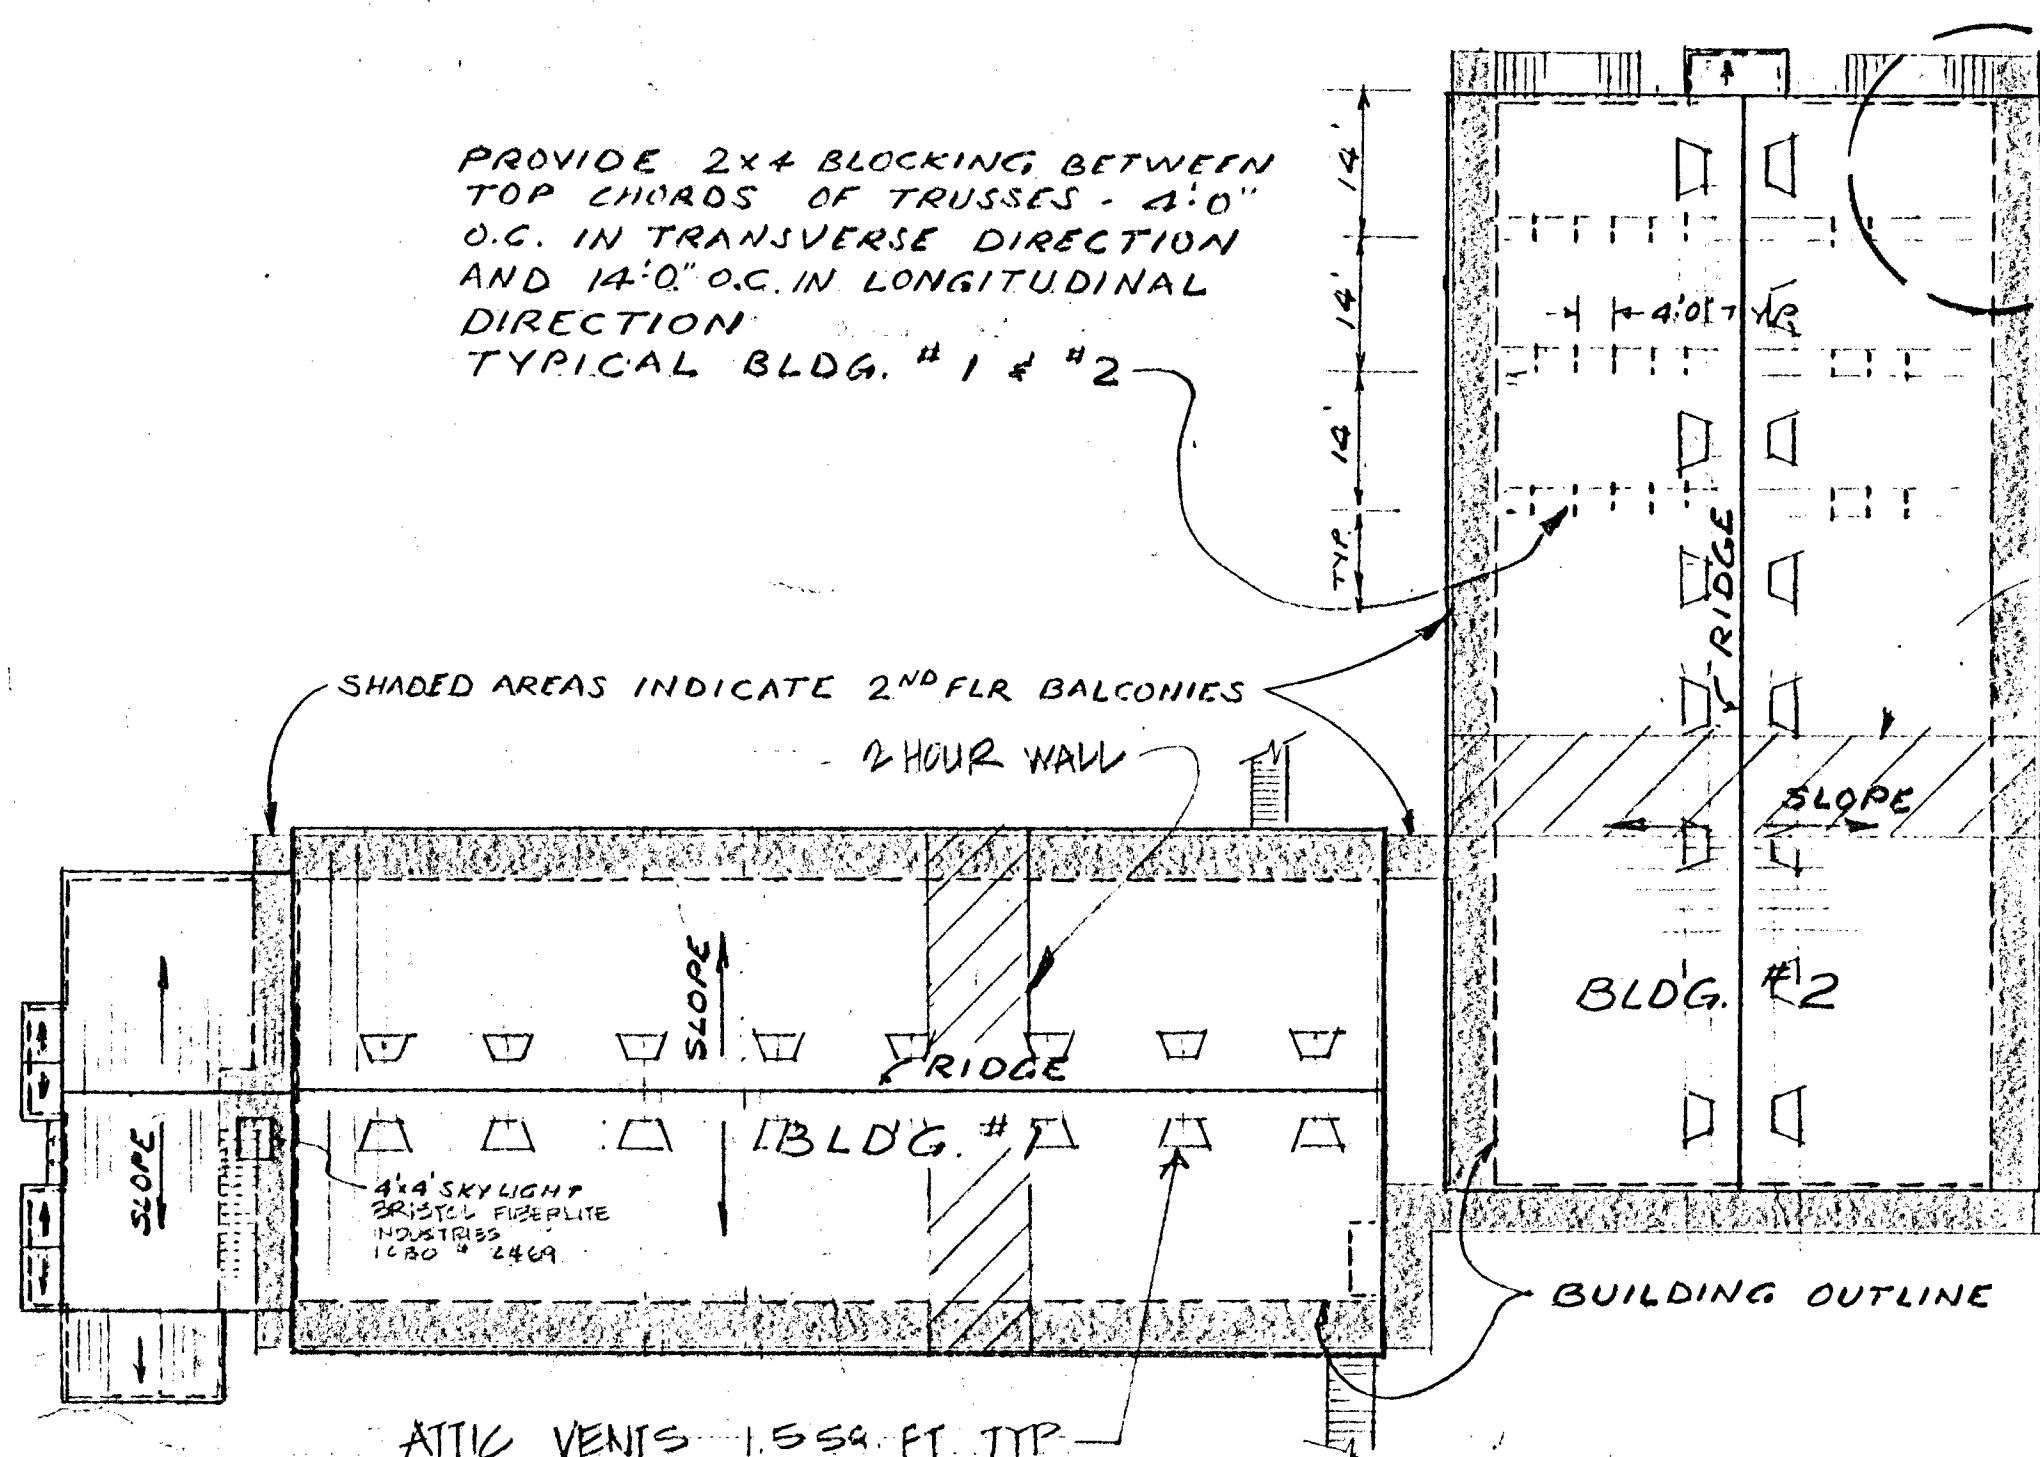 PROVIDE 2x4 BLOCKING BETWEEN
TOP CHORDS OF TRUSSES - 4'-0"
O.C. IN TRANSVERSE DIRECTION
AND 14'-0" O.C. IN LONGITUDINAL
DIRECTION
TYPICAL BLDG. #1 & #2
14'
14'
14'
TYP.
4'0" TYP
RIDGE
SLOPE
BLDG. #2
SHADED AREAS INDICATE 2ND FLR BALCONIES
2 HOUR WALL
SLOPE
RIDGE
BLDG. #1
SLOPE
4'x4' SKYLIGHT
BRISTOL FIBERLITE
INDUSTRIES
ICBO # 2469
BUILDING OUTLINE
ATTIC VENTS 1.5 SQ. FT. TYP